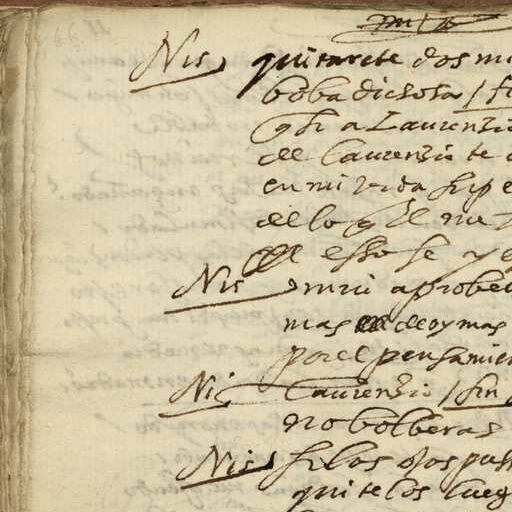 Nis quitarete dos mi
boba dichosa / fi
q si a Laurenzio
del Laurenzio te
en mi vida supe
de lo q el
esso se
Nis mui aprobe
mas de oy mas
por el pensamien
Ni Laurenzio / fin
no bolberas
Nis si los ojos pus
quitelos lueg